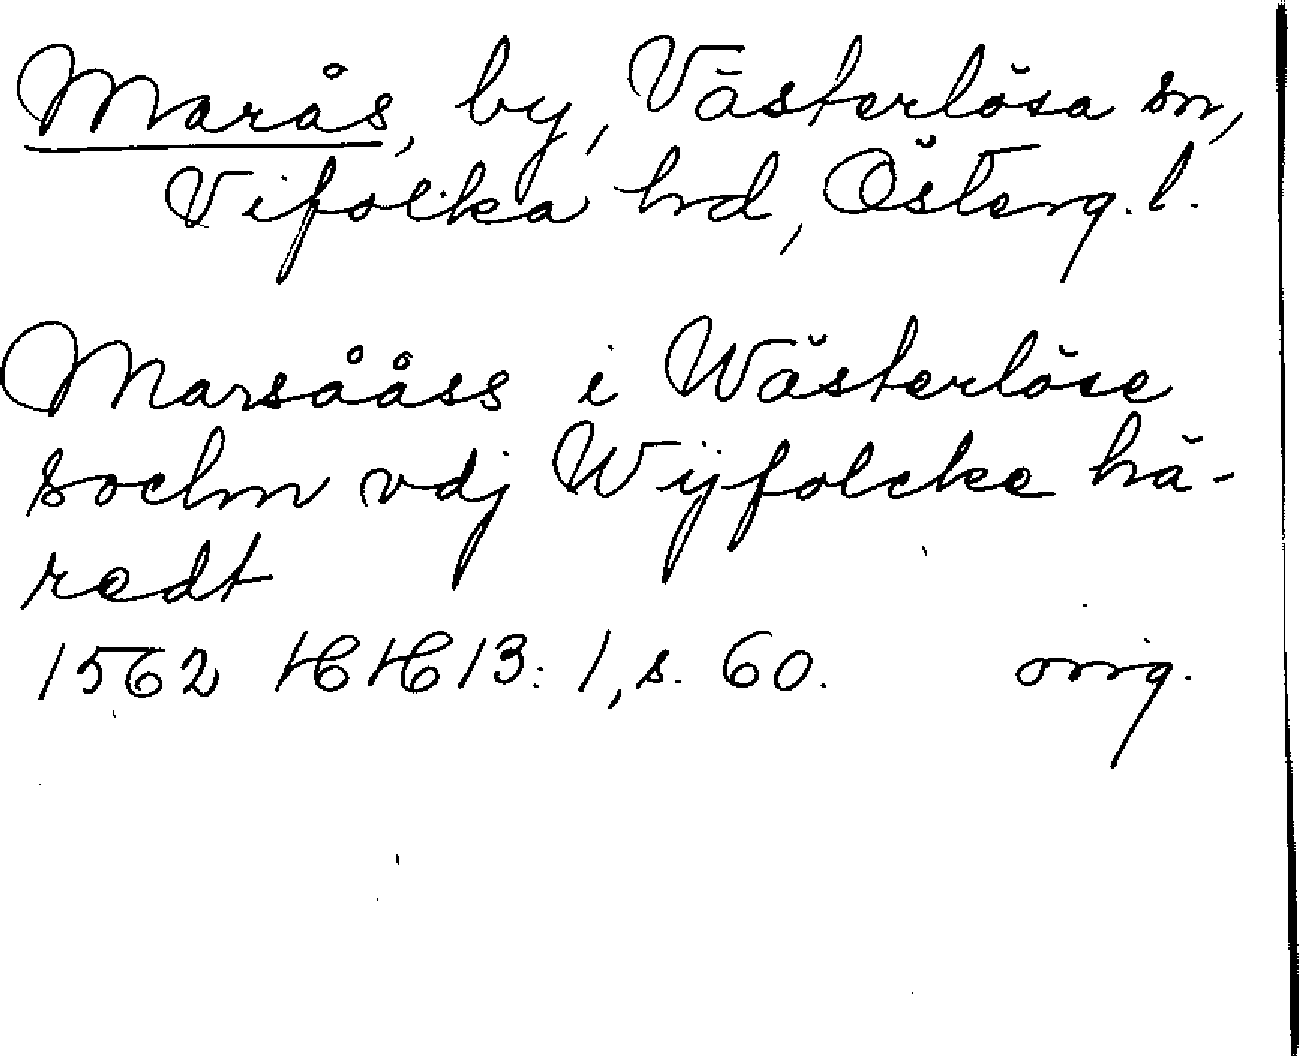 Marås, by, Västerlösa sn,
Vifolka hd, Österg.l.
Marsååss i Wästerlöse
sochn vdj Wijfolcke hä-
redt
1562 HH 13:1, s. 60. orig.